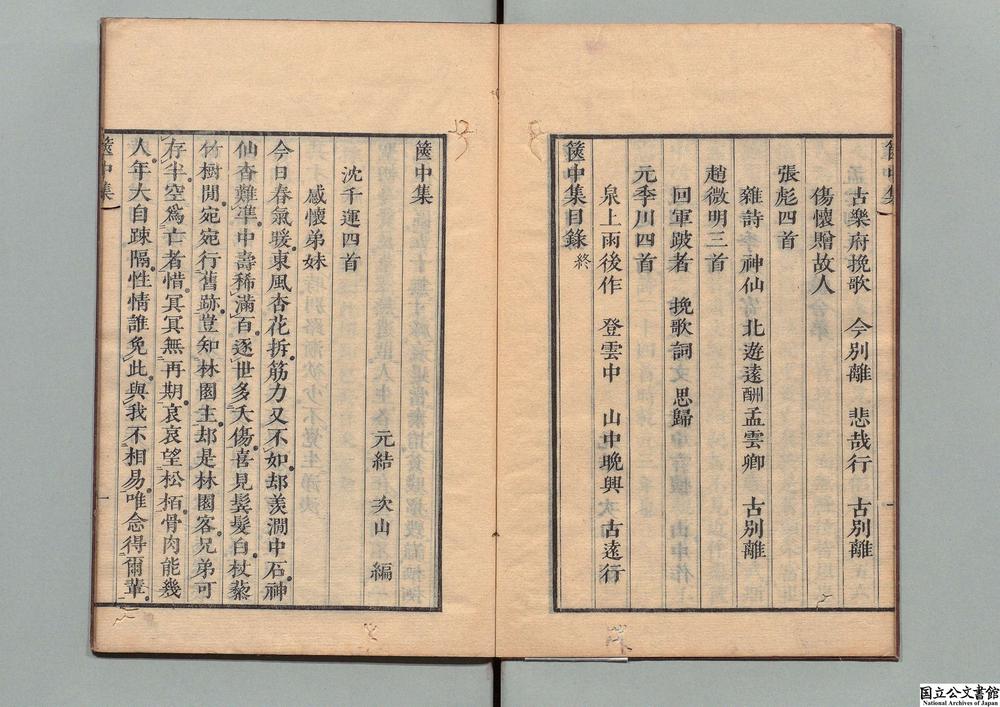 篋中集
古樂府挽歌 今別離 悲哉行 古別離
傷懷贈故人
張彪四首
雜詩 神仙 北遊遠酬孟雲卿 古別離
趙微明三首
回軍跛者 挽歌詞 思歸
元季川四首
泉上雨後作 登雲中 山中晚興 古遠行
篋中集目錄終
篋中集
元結 次山 編
沈千運四首
感懷弟妹
今日春氣暖東風杏花拆筋力又不如却羨澗中石神
仙杳難準中壽稀滿百逐世多夭傷喜見鬂髮白杖藜
竹樹間宛宛行舊跡豈知林園主却是林園客兄弟可
存半空爲亡者惜冥冥無再期哀哀望松栢骨肉能幾
人年大自踈隔性情誰免此與我不相易唯念得爾輩
篋中集
一
国立公文書館
National Archives of Japan